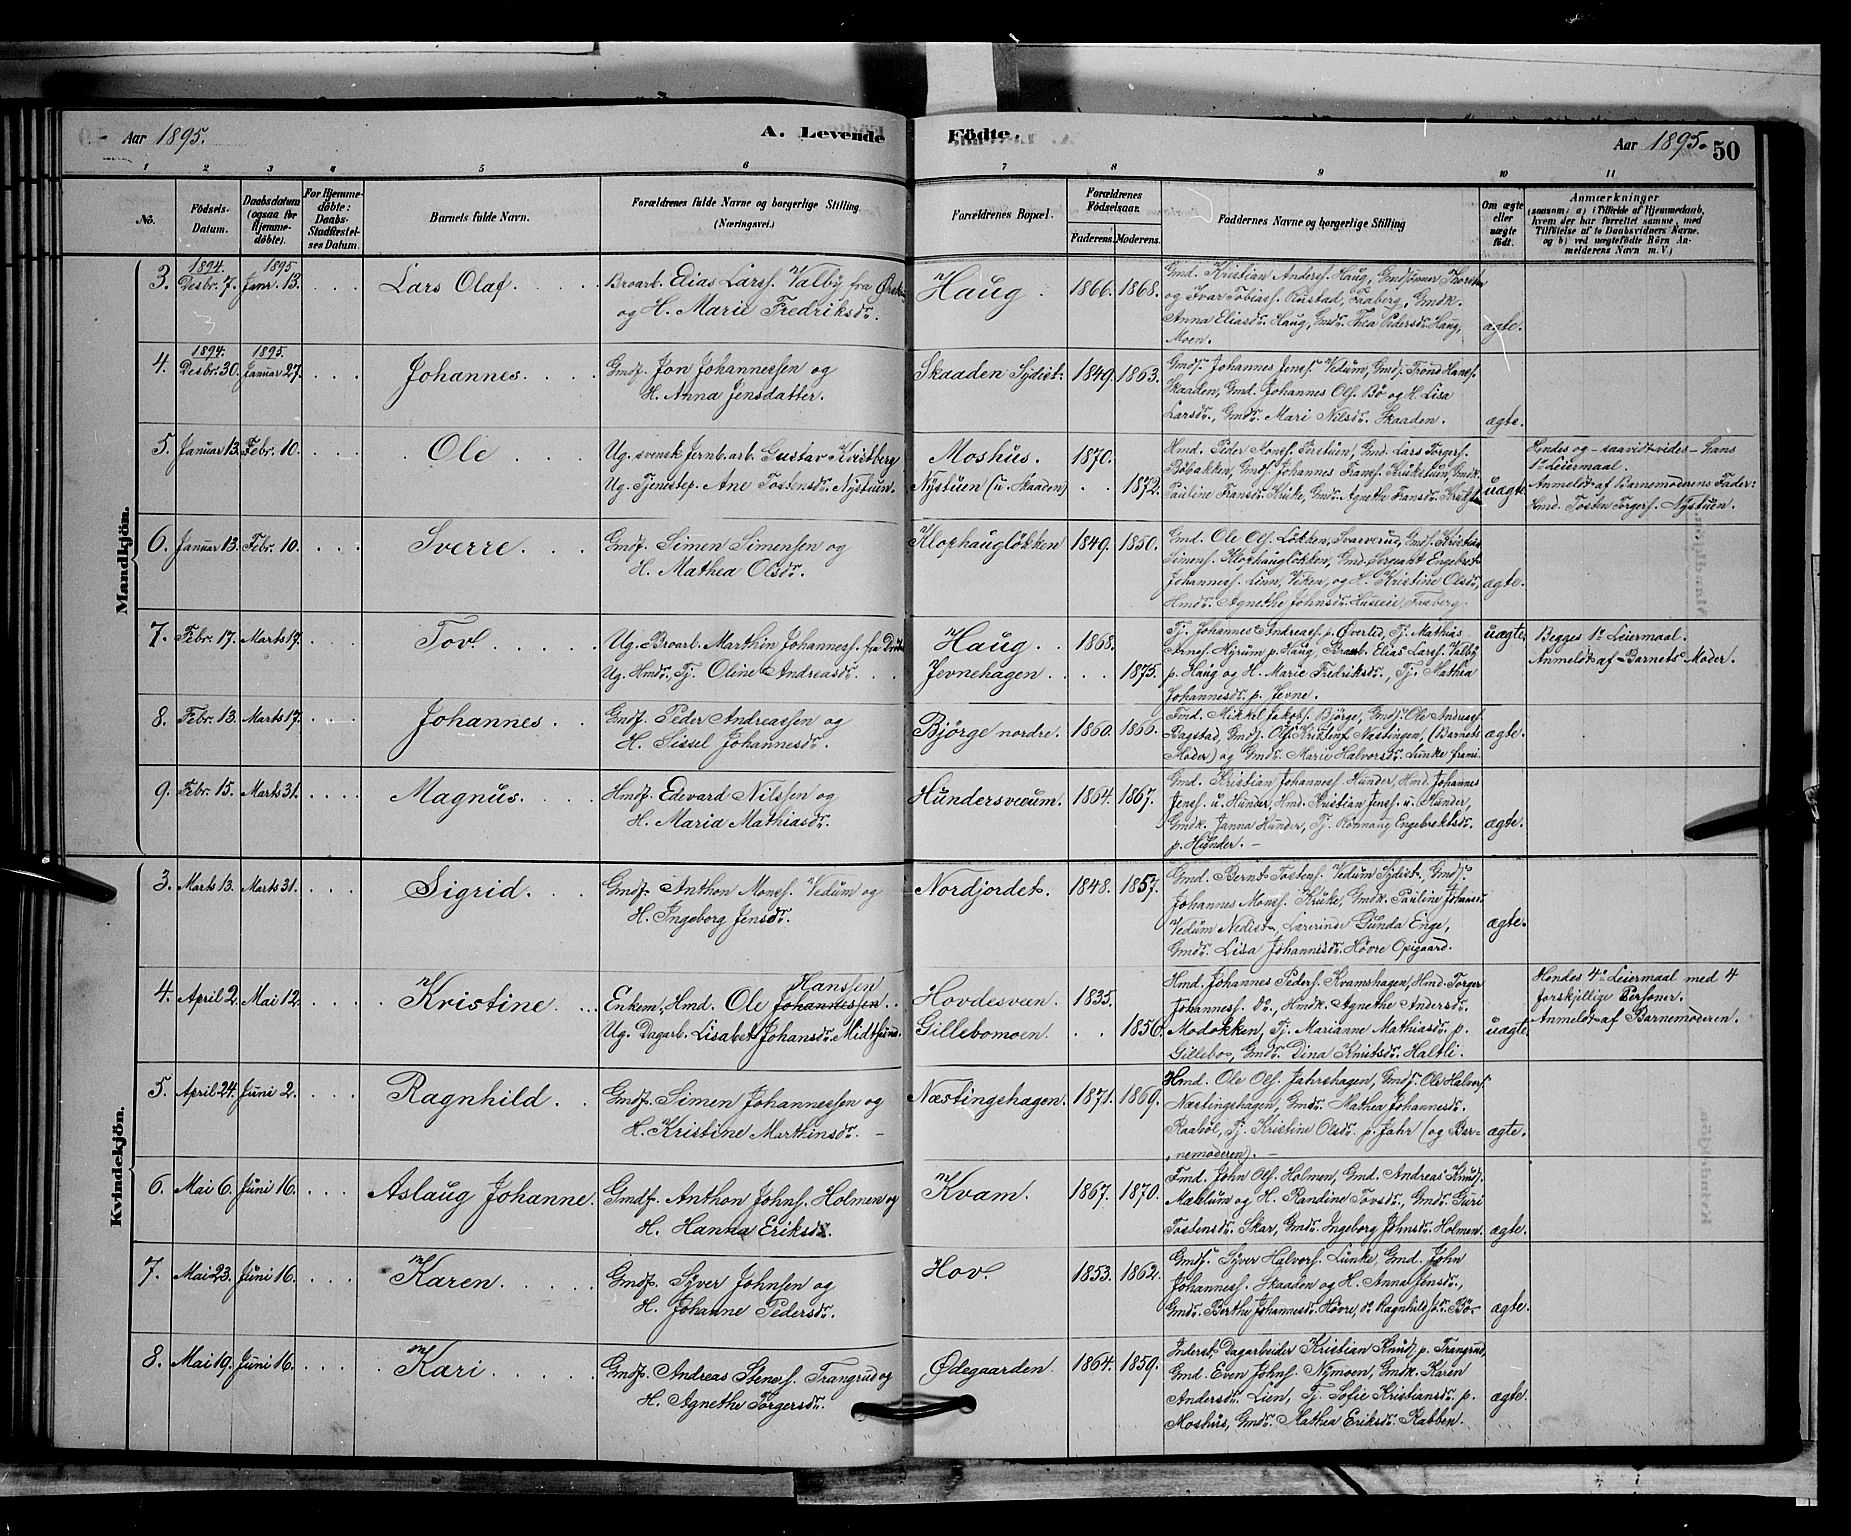 Aar 1895.
A. Levende Födte.
Aar 1895. 50
1 2 3 4 5 6 7 8 9 10 11
No.
Födsels-Datum.
Daabsdatum (ogsaa for Hjemme-döbte).
For Hjemme-döbte: Daabs-Stadfæstel-ses Datum.
Barnets fulde Navn.
Forældrenes fulde Navne og borgerlige Stilling (Næringsvei.)
Forældrenes Bopæl.
Forældrenes Födselsaar.
Faderens. Moderens.
Faddernes Navne og borgerlige Stilling
Om ægte eller uægte födt.
Anmærkninger
(saasom: a) i Tilfælde af Hjemmedaab, hvem der har forrettet samme, med Tilföielse af to Daabsvidners Navne. og b) ved uægtefödte Börn An-melderens Navn m. V.)
Mandkjön.
3. 1894. Desbr. 7. 1895 Janr. 13. Lars Olaf.
Broarb. Elias Larss. Valby fra
og H. Marie Fredriksdr.
Haug. 1866. 1868.
Gmd. Kristian Anderss. Haug, Gmdsønner Thorsten
og Ivar Tobiass. Rustad, Faaberg, Gmdk.
Anna Eliasdr. Haug, Gmdr. Thea Pedersdr. Haug,
Moen.
ægte.
4. 1894. Desbr. 30. 1895. Januar 27. Johannes.
Gmdf. Jon Johannessen og
H. Anna Jensdatter.
Skaaden Sydist. 1849. 1863.
Gmds. Johannes Jenss. Vedum, Gmds. Trond Hanss.
Skaaden, Gmd. Johannes Ols. Bö og H. Lisa
Larsdr., Gmdr. Mari Nilsdr. Skaaden.
ægte.
5. Januar 13. Febr. 10. Ole
Ug. svensk Jernb.arb. Gustav Kvistberg
Ug. Tjenestep. Ane Tostensdr. Nystuen.
Moshus. 1870.
Nystuen (u. Skaaden) 1872.
Hmd. Peder Monss. Perstuen, Gmd. Lars Torgers.
Böbakken, Gmds. Johannes Franss. Kruketun, Gmdk.
Pauline Fransdr. Kruke, Gmdr. Agnethe Fransdr.
uægte
Hendes og - saavidt vides - hans
1ste Leiermaal.
Anmeldt af Barnemoderens Fader:
Hmd. Tosten Torgers. Nystuen.
6. Januar 13. Febr. 10. Sverre.
Gmdf. Simen Simensen og
H. Mathea Olsdr.
Klophauglökken 1849. 1850.
Gmd. Ole Ols. Lökken, Svarverud, Gmds. Kristian
Simens. Klophauglökken, Gmd. Sergeant Engebret
Johanness. Linn, Viken, og H. Kristine Olsdr.,
Hmdr. Agnethe Johnsdr. Faaberg.
ægte.
7. Febr. 17. Marts 17. Tov.
Ug. Broarb. Marthin Johanness. fra
Ug. Hmdr. Tj. Oline Andreasdr.
Haug. 1868.
Jevnehagen 1875.
Tj. Johannes Andreass. p. Øverlid, Tj. Mathias
Arness. Nyrum p. Haug, Broarb. Elias Larss. Valby
p. Haug og H. Marie Fredriksdr., Tj. Mathea
Johannesdr. p. Jevne.
uægte.
Begges 1ste Leiermaal.
Anmeldt af Barnets Moder.
8. Febr. 13. Marts 17. Johannes.
Gmdf. Peder Andreassen og
H. Sissel Johannesdr.
Björge nordre. 1860. 1866.
Fmd. Mikkel Jakobs. Björge, Gmds. Ole Andreass.
Bagstad, Gmds. Ole Kristens. Næstingen, (Barnets
Moder) og Gmdr. Marie Halvorsdr. Lunke
ægte.
9. Febr. 15. Marts 31. Magnus.
Hmdf. Edevard Nilssen og
H. Maria Mathiasdr.
Hundersveeum. 1864. 1867.
Gmd. Kristian Johanness. Hunder, Hmd. Johannes
Jenss. u. Hunder, Hmd. Kristian Jenss. u. Hunder,
Gmdk. Janna Hunder, Tj. Rönnaug Engebrektsdr.
p. Hunder.
ægte.
Kvindekjön.
3. Marts 13. Marts 31. Sigrid.
Gmdf. Anthon Monss. Vedum og
H. Ingeborg Jensdr.
Nordjordet. 1848. 1857.
Gmd. Bernt Tostens. Vedum Sydist, Gmds.
Johannes Monss. Kruke, Gmdk. Pauline Johansdr.
Vedum Nedist, Lærerinde Gunda Enge,
Gmdr. Lisa Johannesdr. Hovre Opigaard.
ægte.
4. April 2. Mai 12. Kristine.
Hansen
Enkem. Hmd. Ole Johannessen.
Ug. Dagarb. Lisabet Johansdr. Midtlund.
Hovdesveen. 1835.
Gillebomoen. 1856.
Hmd. Johannes Peders. Kvamshagen, Hmd. Torger
Johanness. Do., Hmdk. Agnethe Andersdr.
Modokken, Tj. Marianne Mathiasdr. p.
Gillebo, Gmdr. Dina Knutsdr. Haltli.
uægte
Hendes 4de Leiermaal med 4
forskjellige Personer.
Anmeldt af Barnemoderen.
5. April 24. Juni 2. Ragnhild.
Gmdf. Simen Johannessen og
H. Kristine Marthinsdr.
Næstingshagen. 1871. 1869.
Hmd. Ole Ols. Jahrshagen, Gmds. Ole Halvors.
Næstingshagen, Gmdr. Mathea Johannesdr.
Raaböl, Tj. Kristine Olsdr. p. Jahr (og Bar-
nemoderen).
ægte.
6. Mai 6. Juni 16. Aslaug Johanne.
Gmdf. Anthon Johns. Holmen og
H. Hanna Eriksdr.
Kvam. 1867. 1870.
Fmd. John Ols. Holmen, Gmd. Andreas Knuds.
Mæhlum og H. Randine Tovsdr., Gmdr. Guri
Tostensdr. Skar, Gmdr. Ingeborg Johnsdr. Holmen.
ægte.
7. Mai 23. Juni 16. Karen.
Gmdf. Syver Johnsen og
H. Johanne Pedersdr.
Hov. 1853. 1862.
Gmds. Syver Halvors. Lunke, Gmd. John
Johanness. Skaaden og H. Anna Jensdr.,
Gmdr. Berthe Johannesdr. Hovre, do. Ragnhild Bö.
ægte.
8. Mai 19. Juni 16. Kari.
Gmdf. Andreas Stenss. Trangrud og
H. Agnethe Torgersdr.
Ødegaarden 1864. 1859.
Inderst, Dagarbeider Kristian Knuds. p. Trangrud,
Gmd. Even Johns. Nymoen, Gmdk. Karen
Andersdr. Lien, Tj. Sofie Kristiansdr. p.
Moshus, Gmdr. Mathea Eriksdr. Rabben.
ægte.